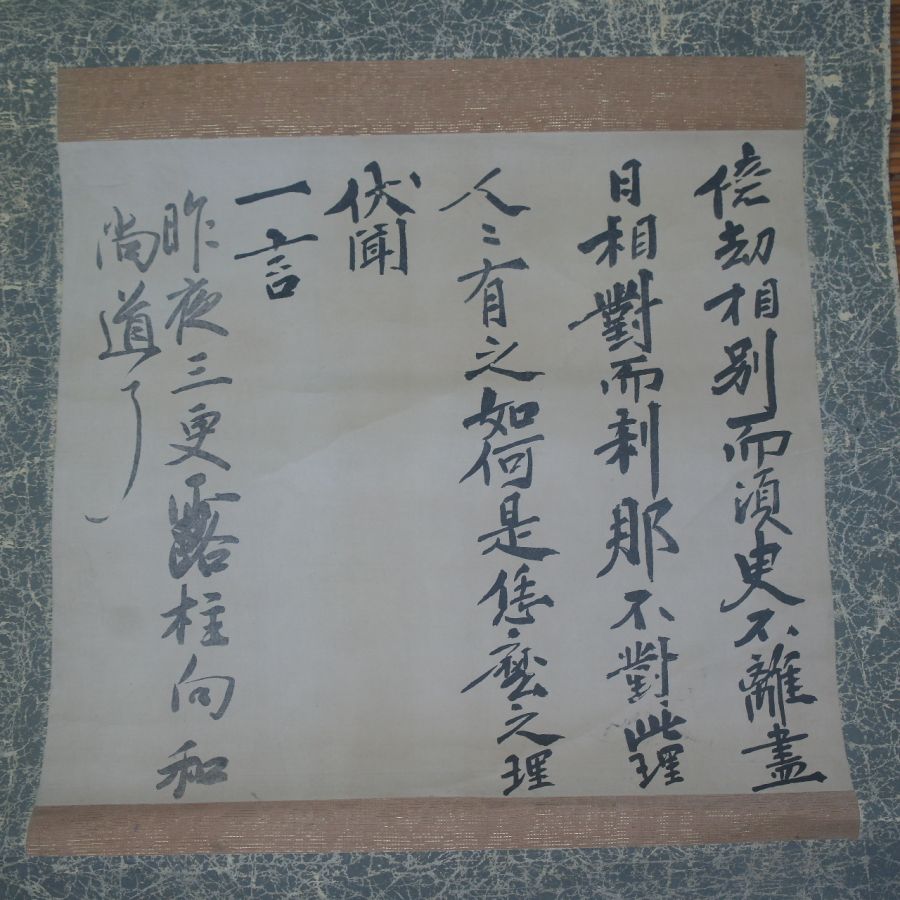 億劫相別而須臾不離盡
日相對而刹那不對此理
人〻有之如何是恁麼之理
伏聞
一言
昨夜三更露柱向和
尚道了